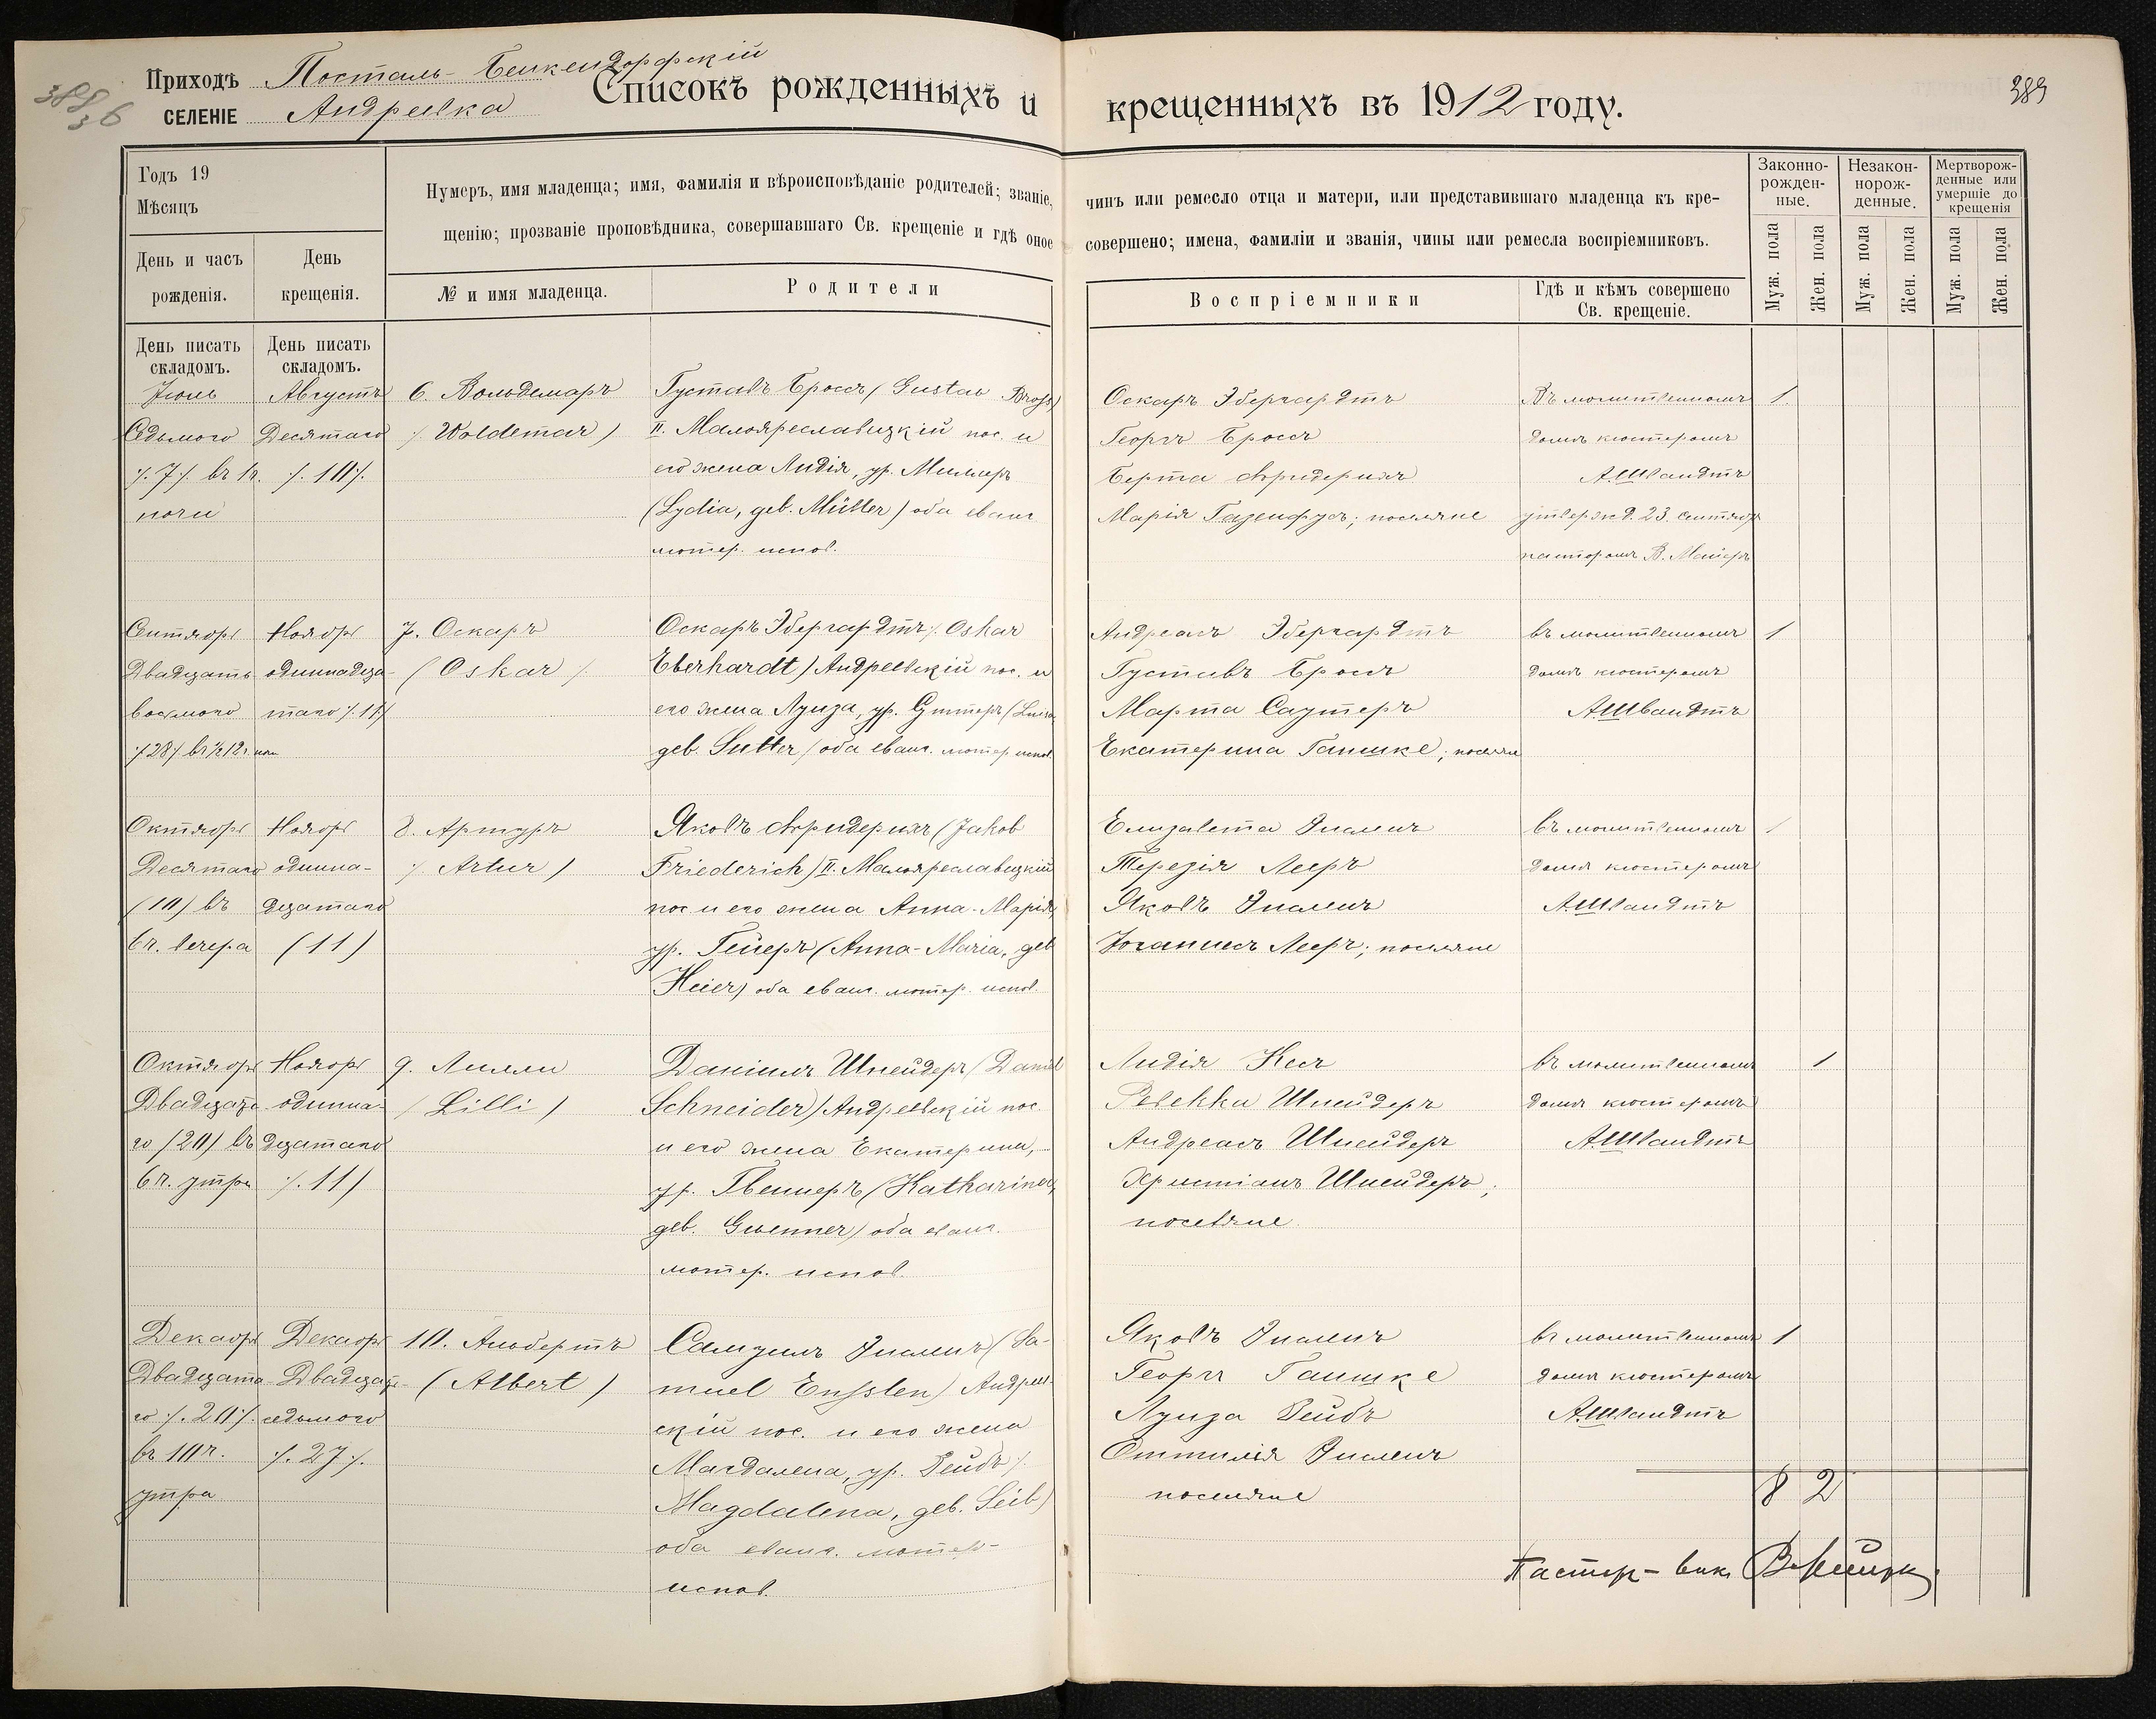 Приходъ Посталь-Бенкендорфскій
селеніе Андреевка
388
36
389
Списокъ рожденныхъ и крещенныхъ въ 1912 году.
Годъ 19
Мѣсяцъ
День и часъ рожденія.
День крещенія.
Нумеръ, имя младенца; имя, фамилія и вѣроисповѣданіе родителей; званіе, чинъ или ремесло отца и матери, или представившаго младенца къ кре-
щенію; прозваніе проповѣдника, совершавшаго Св. крещеніе и гдѣ оное совершено; имена, фамиліи и званія, чины или ремесла воспріемниковъ.
№ и имя младенца.
Родители
Воспріемники
Гдѣ и кѣмъ совершено
Св. крещеніе.
Законно-
рожден-
ные.
Незакон-
норож-
денные.
Мертворож-
денные или
умершіе до
крещенія
Муж. пола
Жен. пола
Муж. пола
Жен. пола
Муж. пола
Жен. пола
День писать
складомъ.
День писать
складомъ.
Іюль
Седьмого
/.7./. въ 1ч.
ночи
Августъ
Десятаго
/.10/.
6. Вольдемаръ
/. Woldemar)
Густавъ Броссъ (Gustav Bross)
II. Малоярославецкій пос. и
его жена Лидія, ур. Миллеръ
(Lydia, geb. Müller) оба еванг.
лютер. испов.
Оскаръ Эбергардтъ
Георгъ Броссъ
Берта Фридерихъ
Марія Газенфусъ; поселяне
Въ молитвенномъ
домѣ кюстеромъ
А.Швандтъ
утвержд. 23. сентября
пасторомъ В. Мейеръ
1.
Сентябрь
Двадцать
восьмого
/28/. въ ½12ч. ночи
Ноябрь
одиннадца-
таго /.11/
7. Оскаръ
(Oskar /.
Оскаръ Эбергардтъ /. Oskar
Eberhardt) Андреевскій пос. и
его жена Луиза, ур. Суттеръ (Luisa,
geb. Sutter) оба еванг. лютер. испов.
Андреасъ Эбергардтъ
Густавъ Броссъ
Марта Саутеръ
Екатерина Ганшке; поселяне
въ молитвенномъ
домѣ кюстеромъ
А.Швандтъ
1
Октябрь
Десятаго
(10) въ
6ч. вечера
Ноябрь
одинна-
дцатаго
(11)
8. Артуръ
/. Artur)
Яковъ Фридерихъ (Jakob
Friederich) II. Малоярославецкій
пос. и его жена Анна-Марія,
ур. Гейеръ (Anna-Maria, geb.
Heier) оба еванг. лютер. испов.
Елизавета Энсленъ
Терезія Лееръ
Яковъ Энсленъ
Іоганнесъ Лееръ; поселяне
въ молитвенномъ
домѣ кюстеромъ
А.Швандтъ
1
Октябрь
Двадцата-
го /20/ въ
6ч. утра
Ноябрь
одинна-
дцатаго
/.11/
9. Лилли
(Lilli)
Даніилъ Шнейдеръ (Daniel
Schneider) Андреевскій пос.
и его жена Екатерина,
ур. Гвеннеръ (Katharina,
geb. Gwenner) оба еванг.
лютер. испов.
Лидія Кесъ
Ребекка Шнейдеръ
Андреасъ Шнейдеръ
Христіанъ Шнейдеръ;
поселяне
въ молитвенномъ
домѣ кюстеромъ
А.Швандтъ
1
Декабрь
Двадцата-
го /.20/.
въ 10ч.
утра
Декабрь
Двадцать
седьмого
/.27/.
10. Альбертъ
(Albert)
Самуилъ Энсленъ (Sa-
muel Ensslen) Андреев-
скій пос. и его жена
Магдалена, ур. Зейбъ /.
Magdalena, geb. Seib)
оба еванг. лютер-
испов.
Яковъ Энсленъ
Георгъ Ганшке
Луиза Зейбъ
Оттилія Энсленъ
поселяне
въ молитвенномъ
домѣ кюстеромъ
А.Швандтъ
1
8 2
Пасторъ-вик.